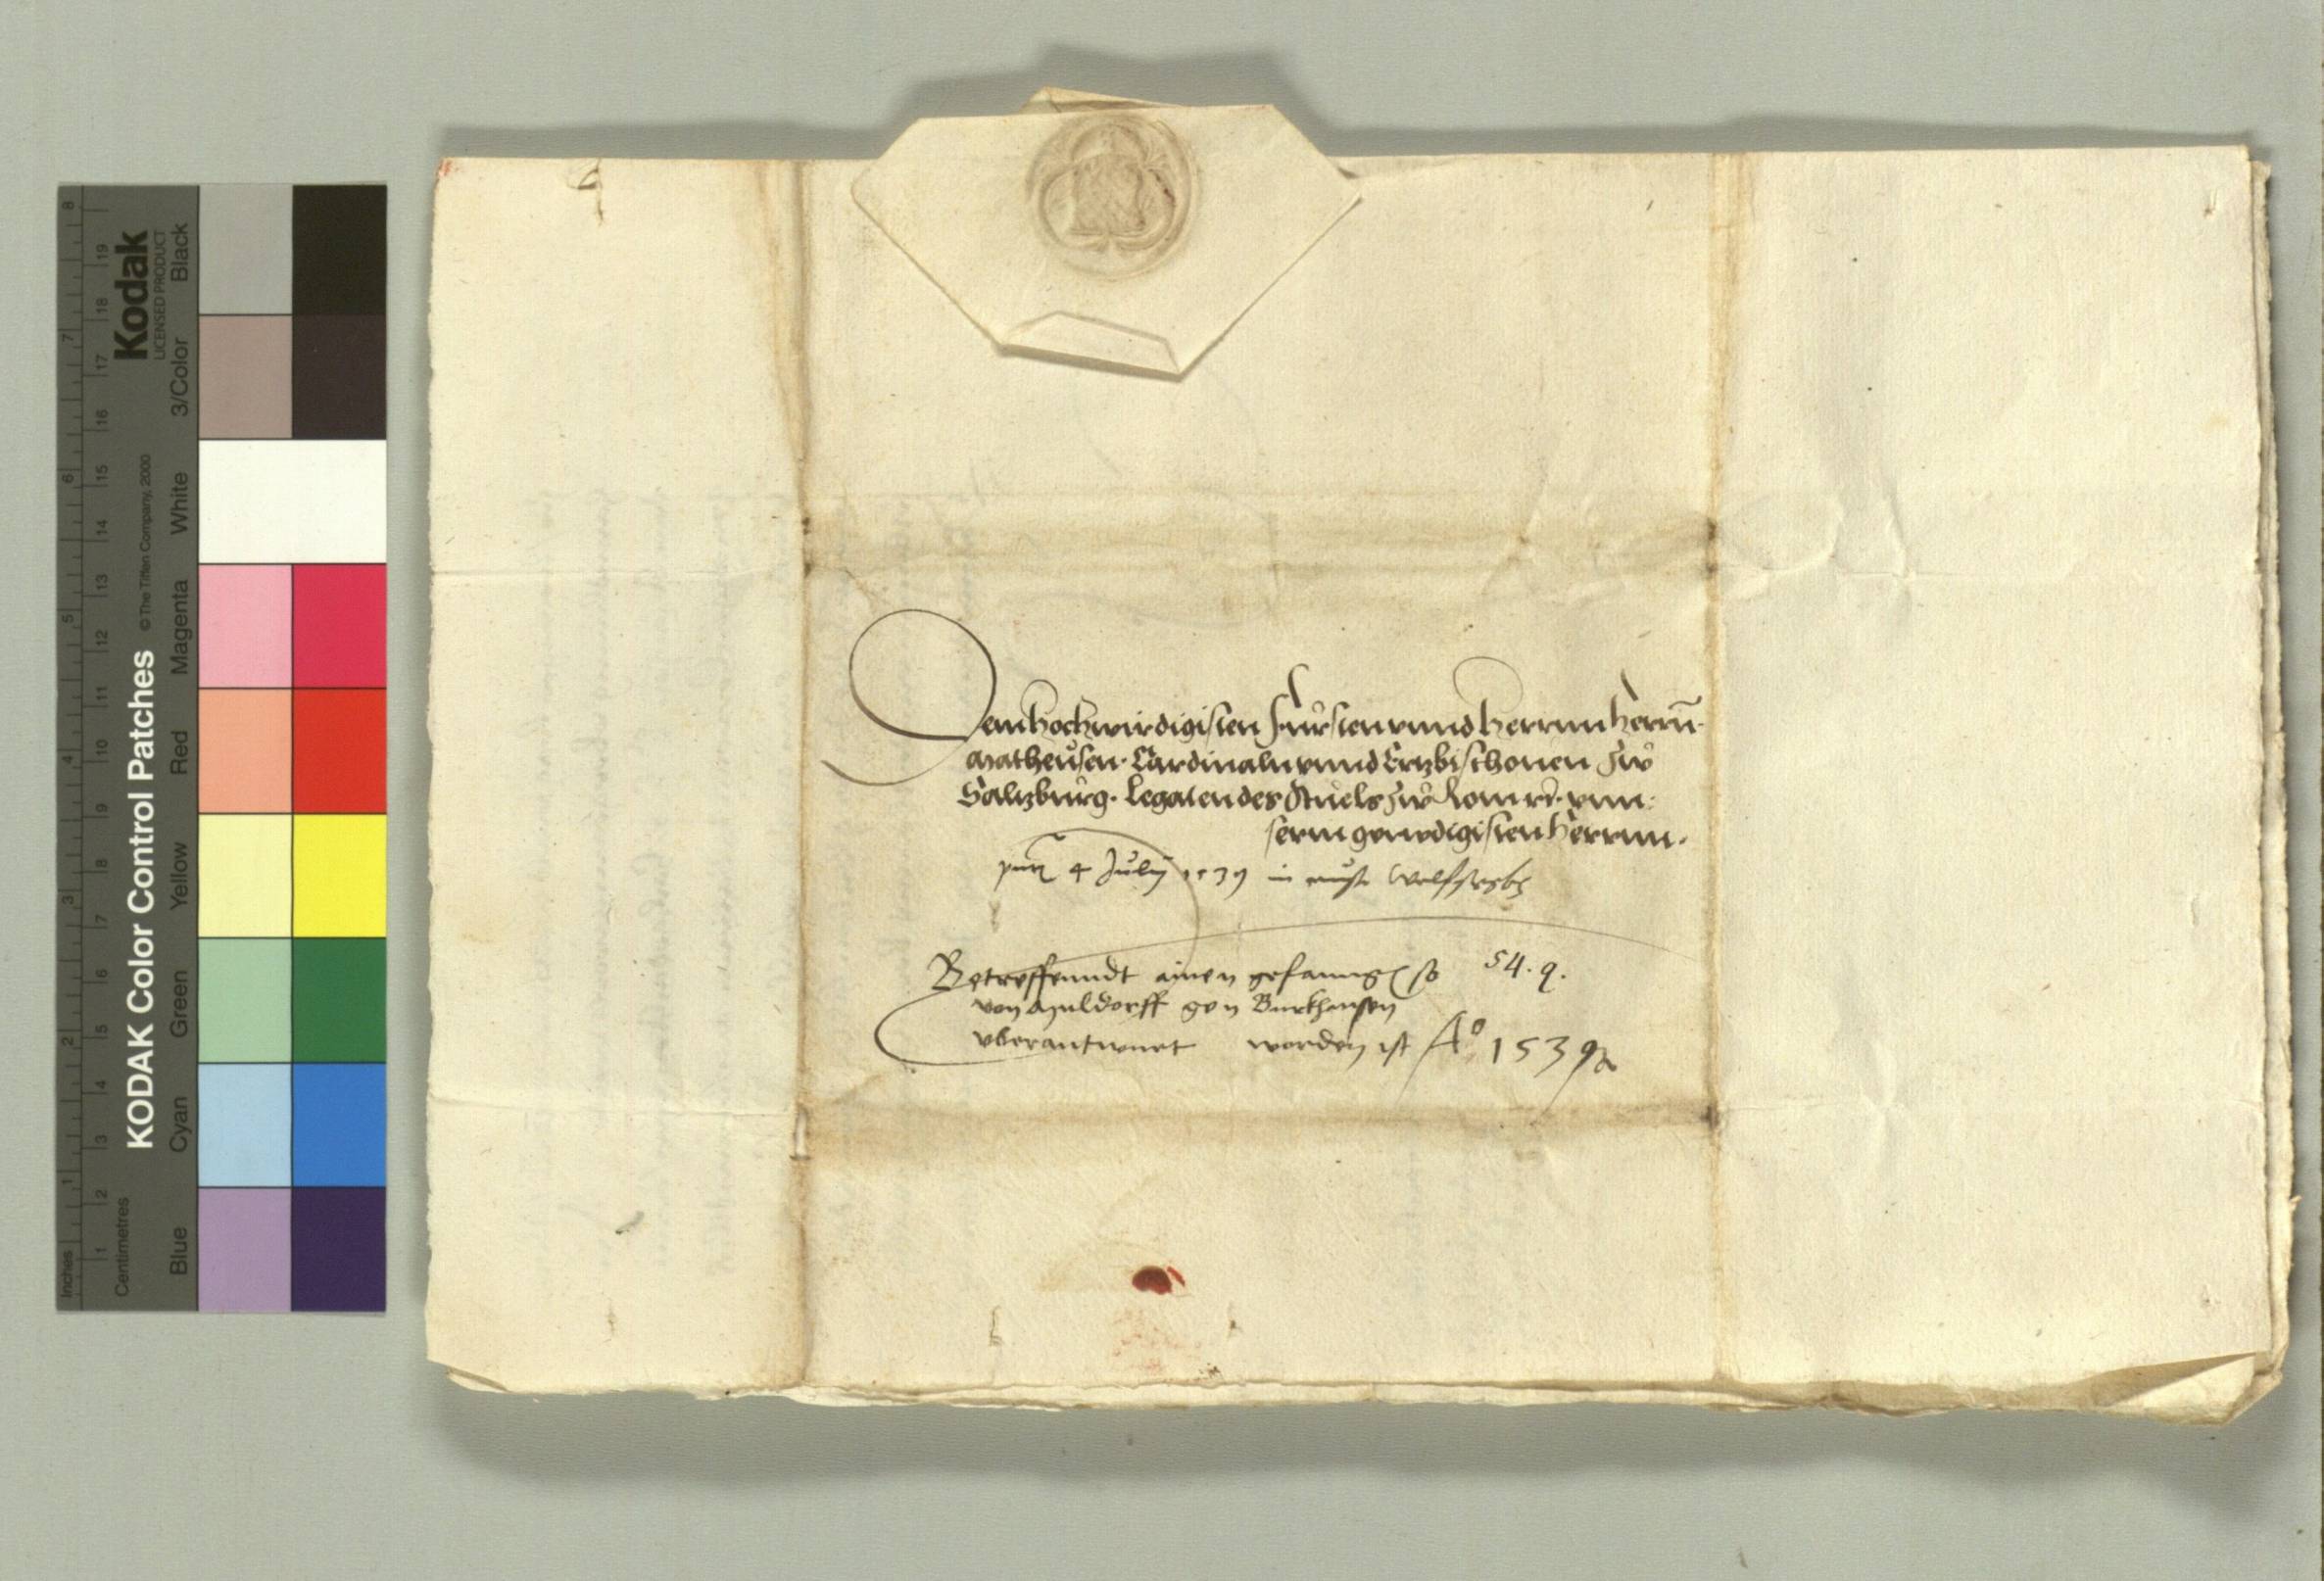 KODAK Color Control Patches
© The Tiffen Company, 2000
Kodak
LICENSED PRODUCT
Inches
1 2 3 4 5 6 7 8
Centimetres
1 2 3 4 5 6 7 8 9 10 11 12 13 14 15 16 17 18 19
Blue Cyan Green Yellow Red Magenta White 3/Color Black
Dem hochwirdigisten Fürsten vnnd herrnn herrn̄
Matheüsen. Cardinaln vnnd Ertzbischouen zw
Saltzburg. Legaten des Stuels zw Rom rc. vnn:
serm genedigisten herrnn.
4 Julÿ 1539 in
Betreffenndt ainen gefanngen so 54. q.
von Muldorff gen Burkhausen
vberantwurt worden ist Ao 1539